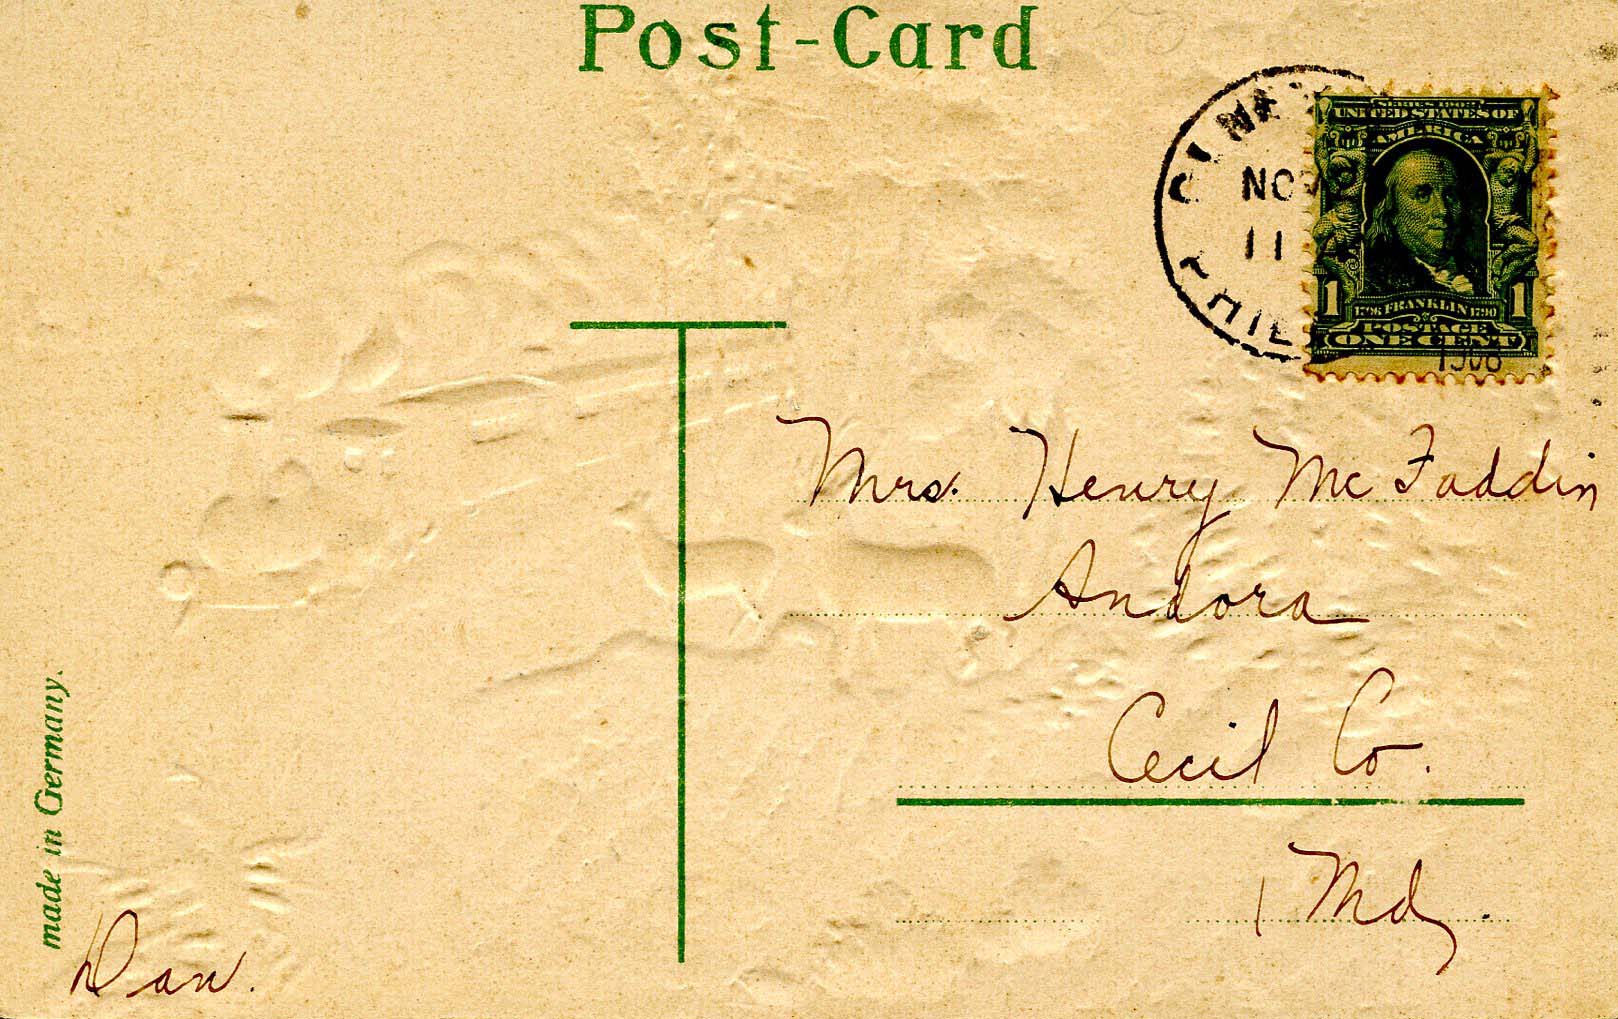 Post-Card
NOV
11
SERIES 1902
UNITED STATES OF
AMERICA
1 1
1706 FRANKLIN 1790
POSTAGE
ONE CENT
1908
Mrs. Henry McFaddin
Andora
Cecil Co.
Md.
made in Germany.
Dan.